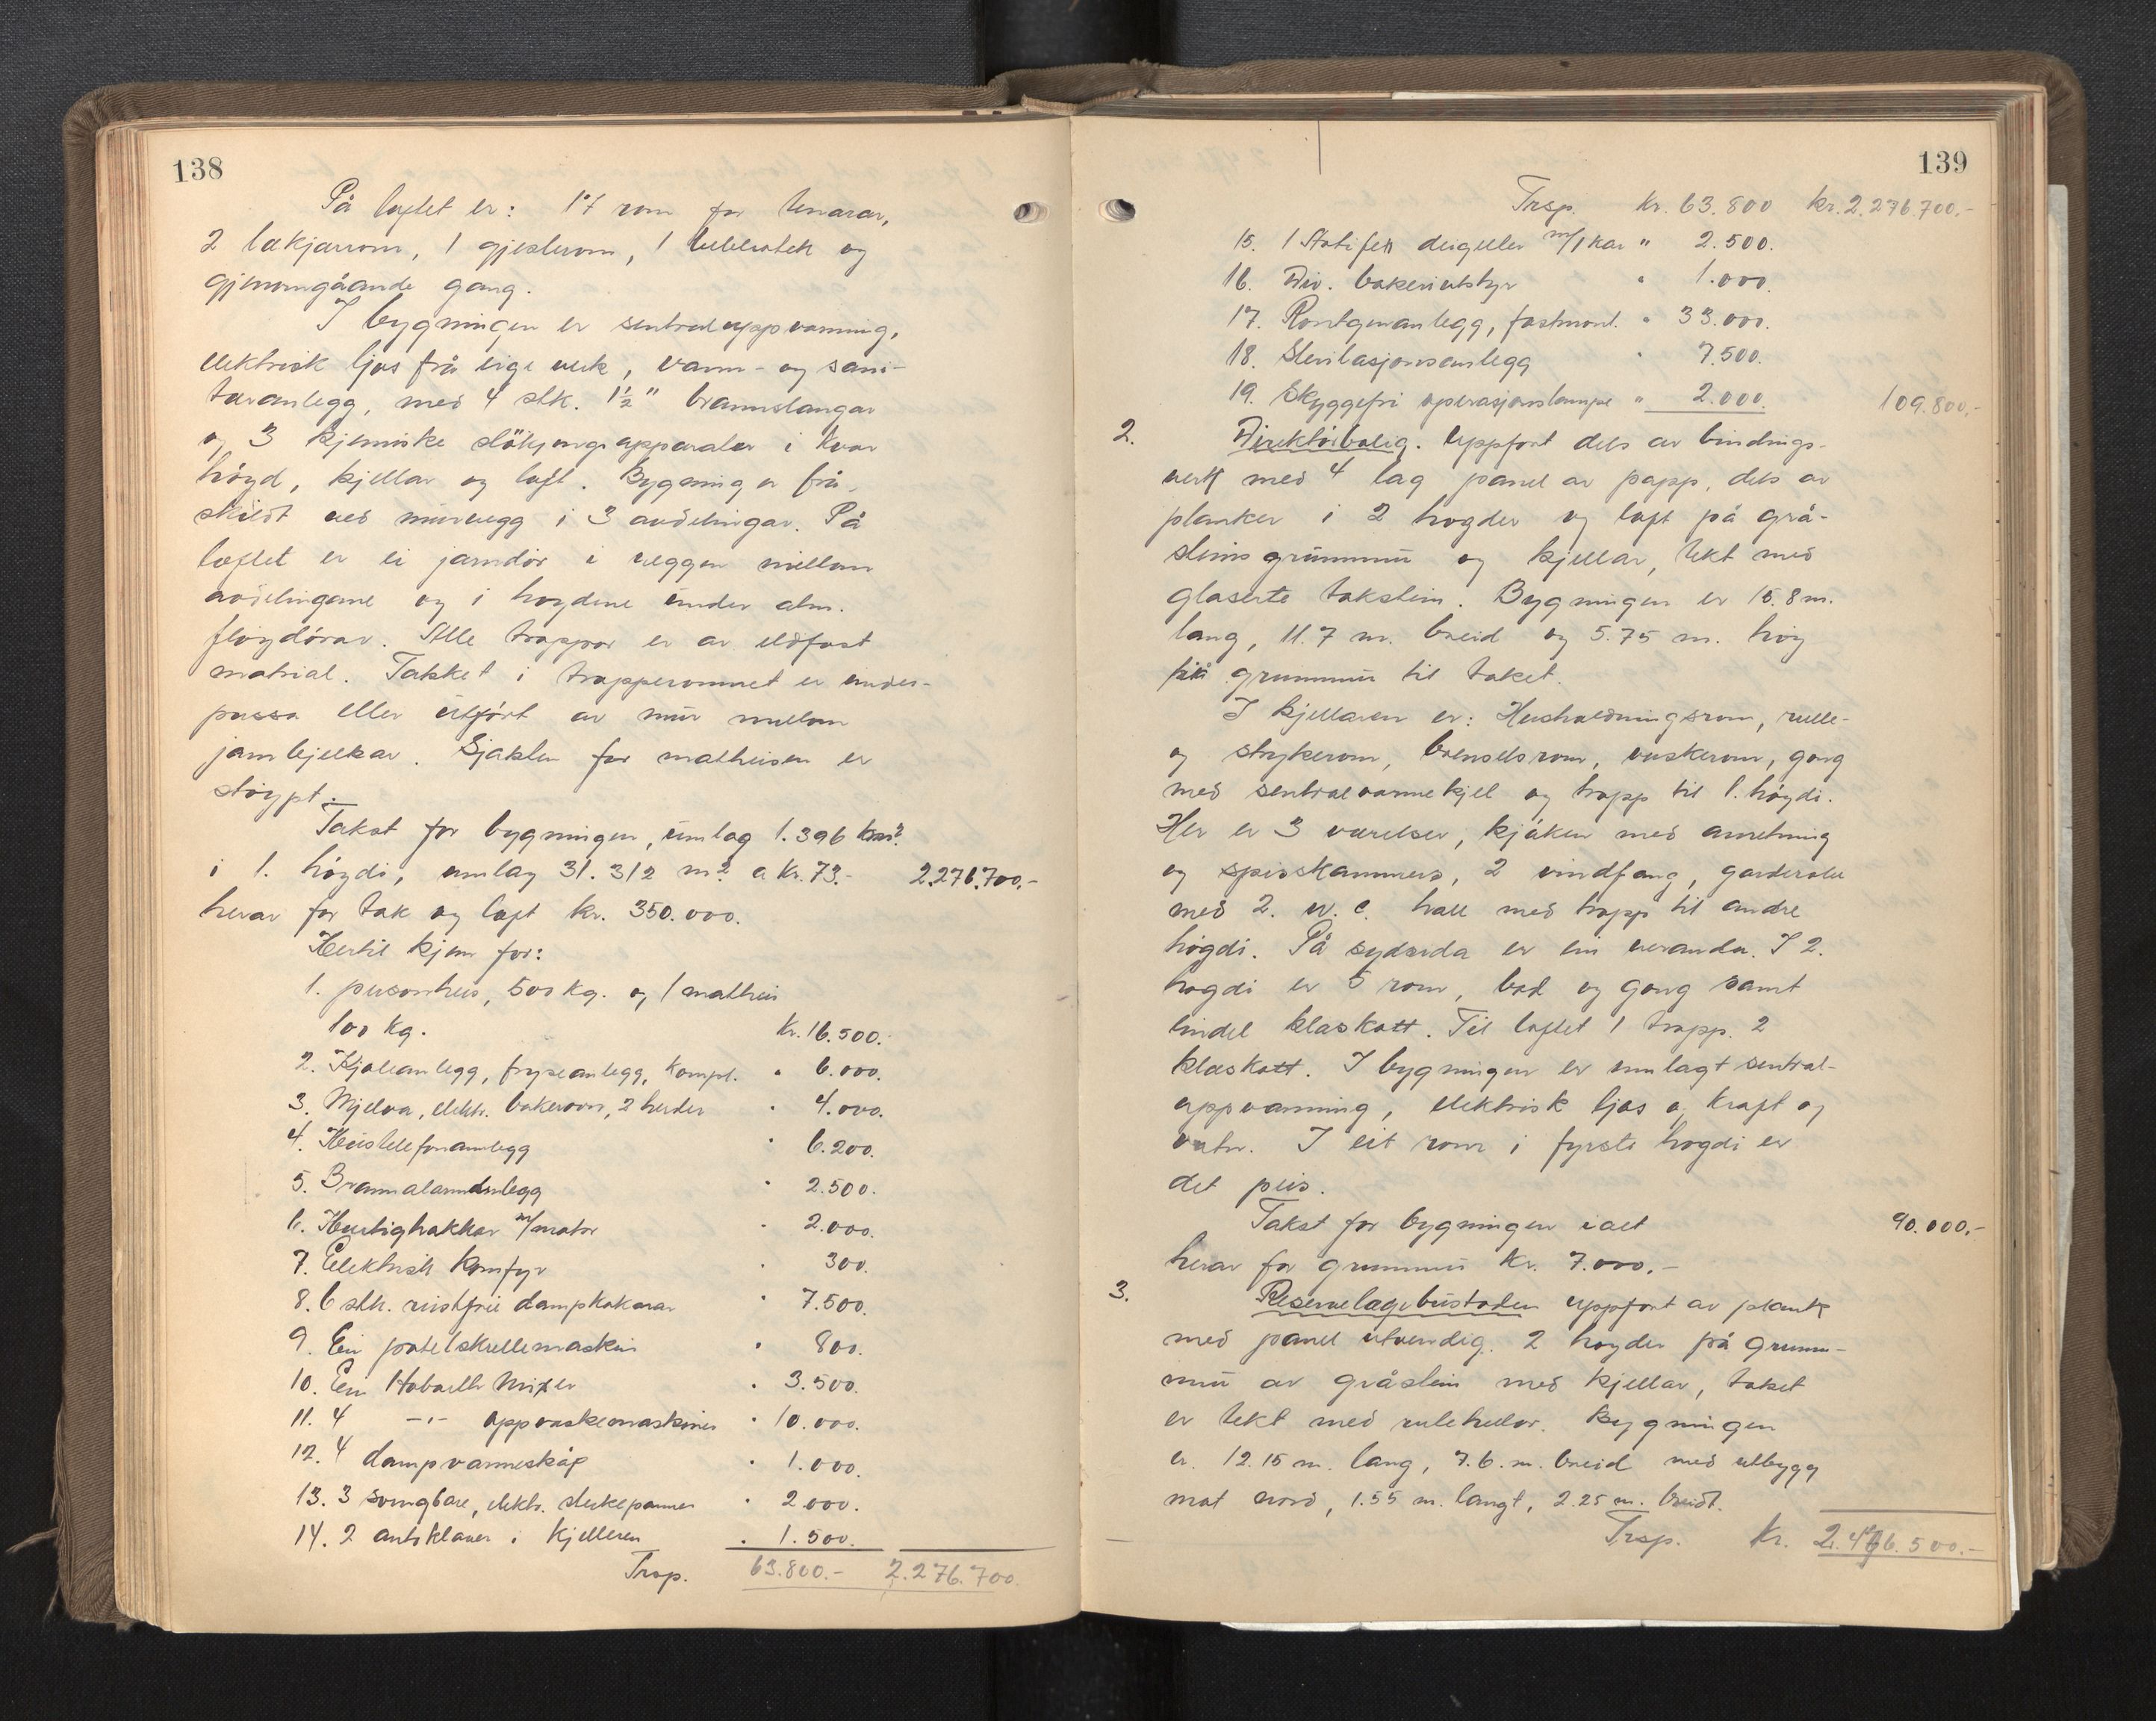 138
På loftet er: 17 rom for tenarar,
2 lækjarrom, 1 gjesterom, 1 bibliotek og
gjenomgåande gang.
I bygningen er sentraluppvarming,
elektrisk ljos frå eige verk, varm- og sani-
tæranlegg, med 4 stk. 1½" brannslangar
og 3 kjemiske slökjingsapparater i kvar
högd, kjellar og loft. Bygning er frå-
skildt ved murvegg i 3 avdelingar. På
loftet er ei jarndör i veggen millom
avdelingane og i högdene under alm.
flöydörar. Alle trappor er av eldfast
matrial. Takket i trapperommet er under-
pussa eller utfört av mur mellom
jarnbjelkar. Sjakten for matheisen er
stöypt.
Takst for bygningen, umlag 1.396 km²
i 1. högdi, umlag 31.312 m² a kr. 73.- 2.276.700,-
herav for tak og loft kr. 350.000.
Hertil kjem for:
1. personheis, 500 kg. og 1 matheis
100 kg. kr. 16.500.-
2. Kjöleanlegg, fryseanlegg, kompl. " 6.000.
3. Mjelva, elektr. bakerovn, 2 herder " 4.000.
4. Hustelefonanlegg " 6.200.
5. Brannalarmanlegg " 2.500.
6. Hurtighakkar m/motor " 2.000.
7. Elektrisk komfyr " 300.
8. 6 stk. rustfrie dampkokarar " 7.500.
9. Ein potetskrellemaskin " 800.
10. Ein Hobarth Mixer " 3.500.
11. 4 -"- oppvaskemaskiner " 10.000.
12. 4 dampvarmeskåp " 1.000.
13. 3 svingbare, elektr. stekepanner " 2.000.
14. 2 autoklaver i kjelleren " 1.500.
Trsp. 63.800.- 2.276.700.
139
Trsp. kr. 63.800 kr. 2.276.700.-
15. 1 deigeller m/1 kar " 2.500.
16. Div. bakeriutstyr " 1.000.
17. Rontgenanlegg, fastmont. " 33.000.
18. Sterilasjonsanlegg " 7.500.
19. Skyggefri operasjonslampe " 2.000. 109.800,-
2. Direktörbolig. Uppfort dels av bindings-
verk med 4 lag panel av papp, dels av
planker i 2 hogder og loft på grå-
steins grunnmur og kjellar, tekt med
glaserte takstein. Bygningen er 15.8 m.
lang, 11.7 m. breid og 5.75 m. hög
frå grunnmur til taket.
I kjellaren er: Husholdningsrom, rulle-
og strykerom, brenselsrom, vaskerom, gang
med sentralvarmekjel og trapp til 1. högdi.
Her er 3 værelser, kjöken med anretning
og spisskammers, 2 vindfang, garderobe
med 2. w. c. hall med trapp til andre
högdi. På sydsida er ein veranda. I 2.
hogdi er 5 rom, bad og gang samt
eindel kleskott. Til loftet 1 trapp. 2
kleskott. I bygningen er innlagt sentral-
uppvarming, elektrisk ljos og kraft og
vatn. I eit rom i fyrste hogdi er
det peis.
Takst for bygningen i alt 90.000,-
herav for grunnmur kr. 7.000.-
3. Reservelægebustaden uppfort av plank
med panel utvendig. 2 hogder på grunn-
mur av gråstein med kjellar, taket
er tekt med rutehellor. Bygningen
er 12.15 m. lang, 7.6. m. breid med utbygg
mot nord, 1.55 m. langt, 2.25 m. breidt.
Trsp. kr. 2.476.500.-